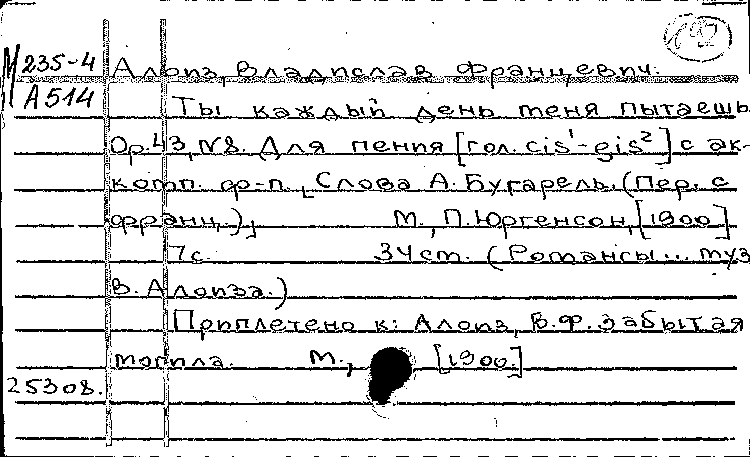 М 235-4
А514
Алоиз, Владислав Францевич.
Ты каждый день меня пытаешь
Ор.43, №8. Для пения [гол. cis¹-gis²] с ак-
комп. ф-п. [Слова А. Бугарель. (Пер. с
франц.)] М., П. Юргенсон, [1900]
7с. 34см. (Романсы... муз
В. Алоиза.)
Приплетено к: Алоиз, В.Ф. Забытая
могила. М., [1900.]
25308.